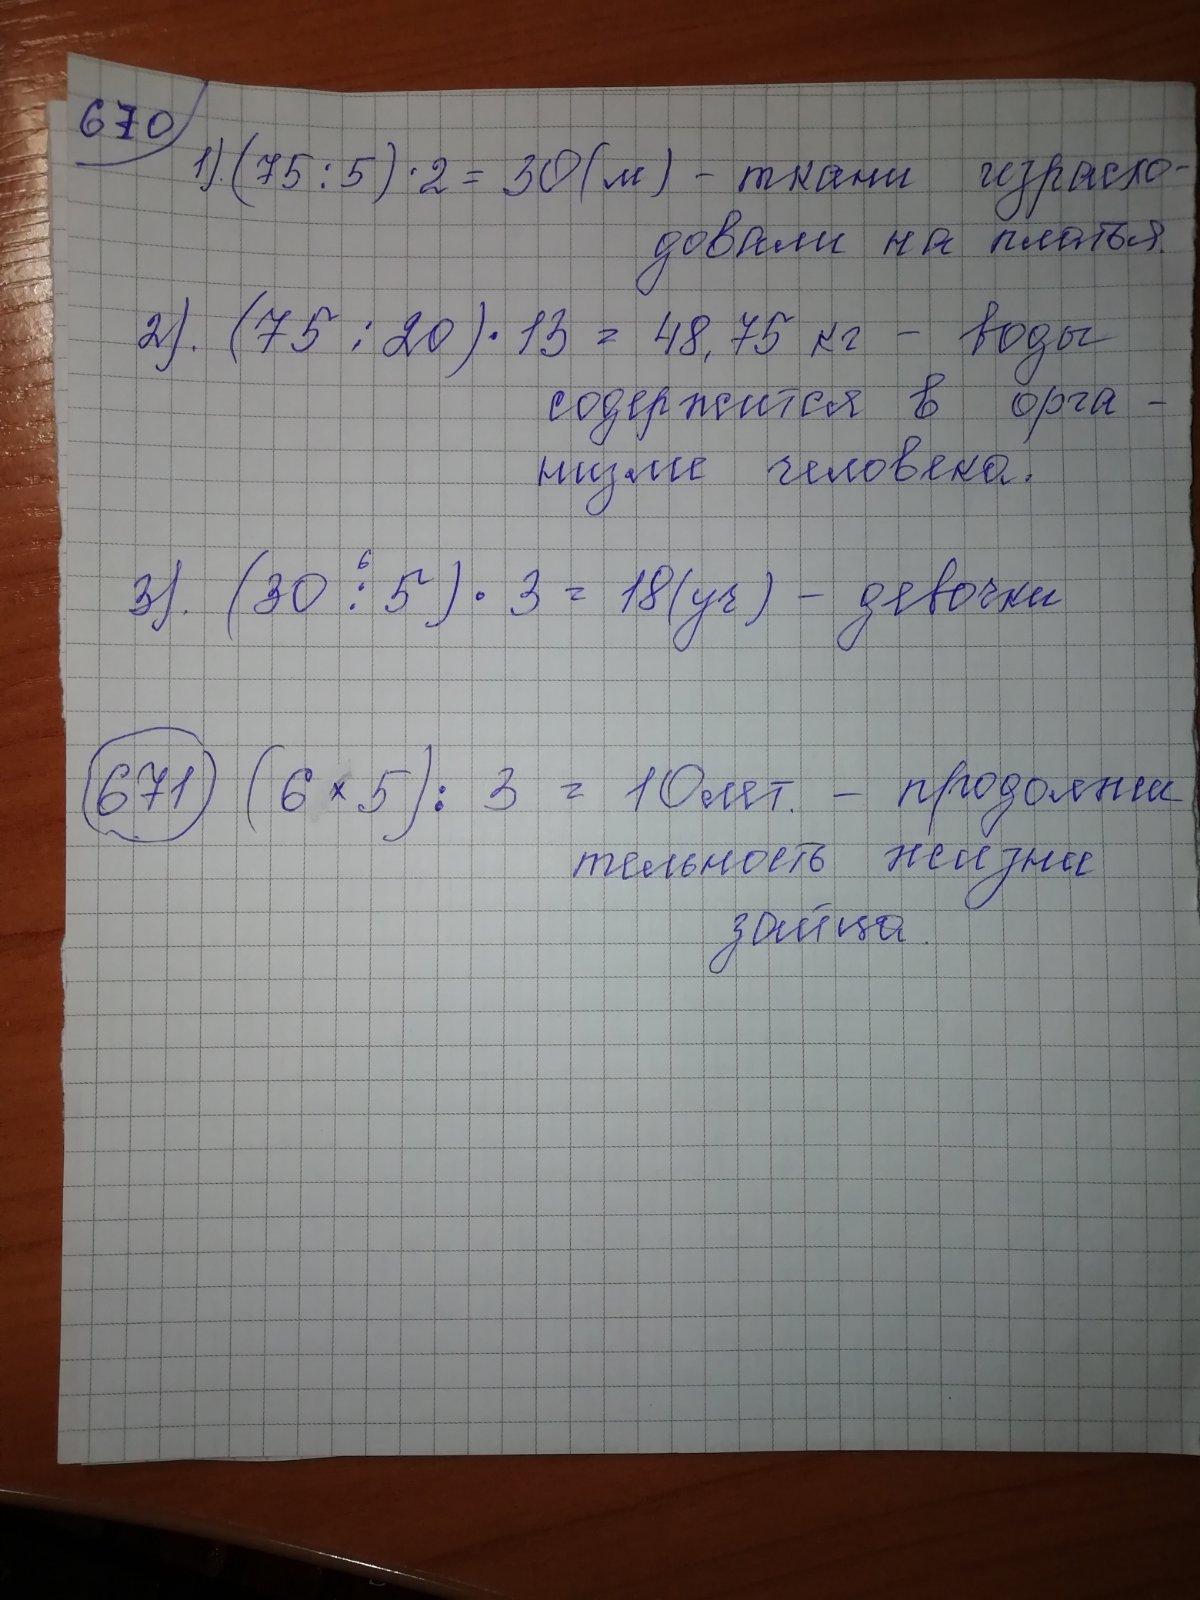 670
1). (75:5)·2 = 30(м) - ткани израсхо-
довали на платья.
2). (75 : 20)·13 = 48,75 кг - воды
содержится в орга-
низме человека.
6
3). (30 : 5)·3 = 18(уч) - девочки
671 (6 × 5): 3 = 10лет. - продолжи
тельность жизни
зайца.